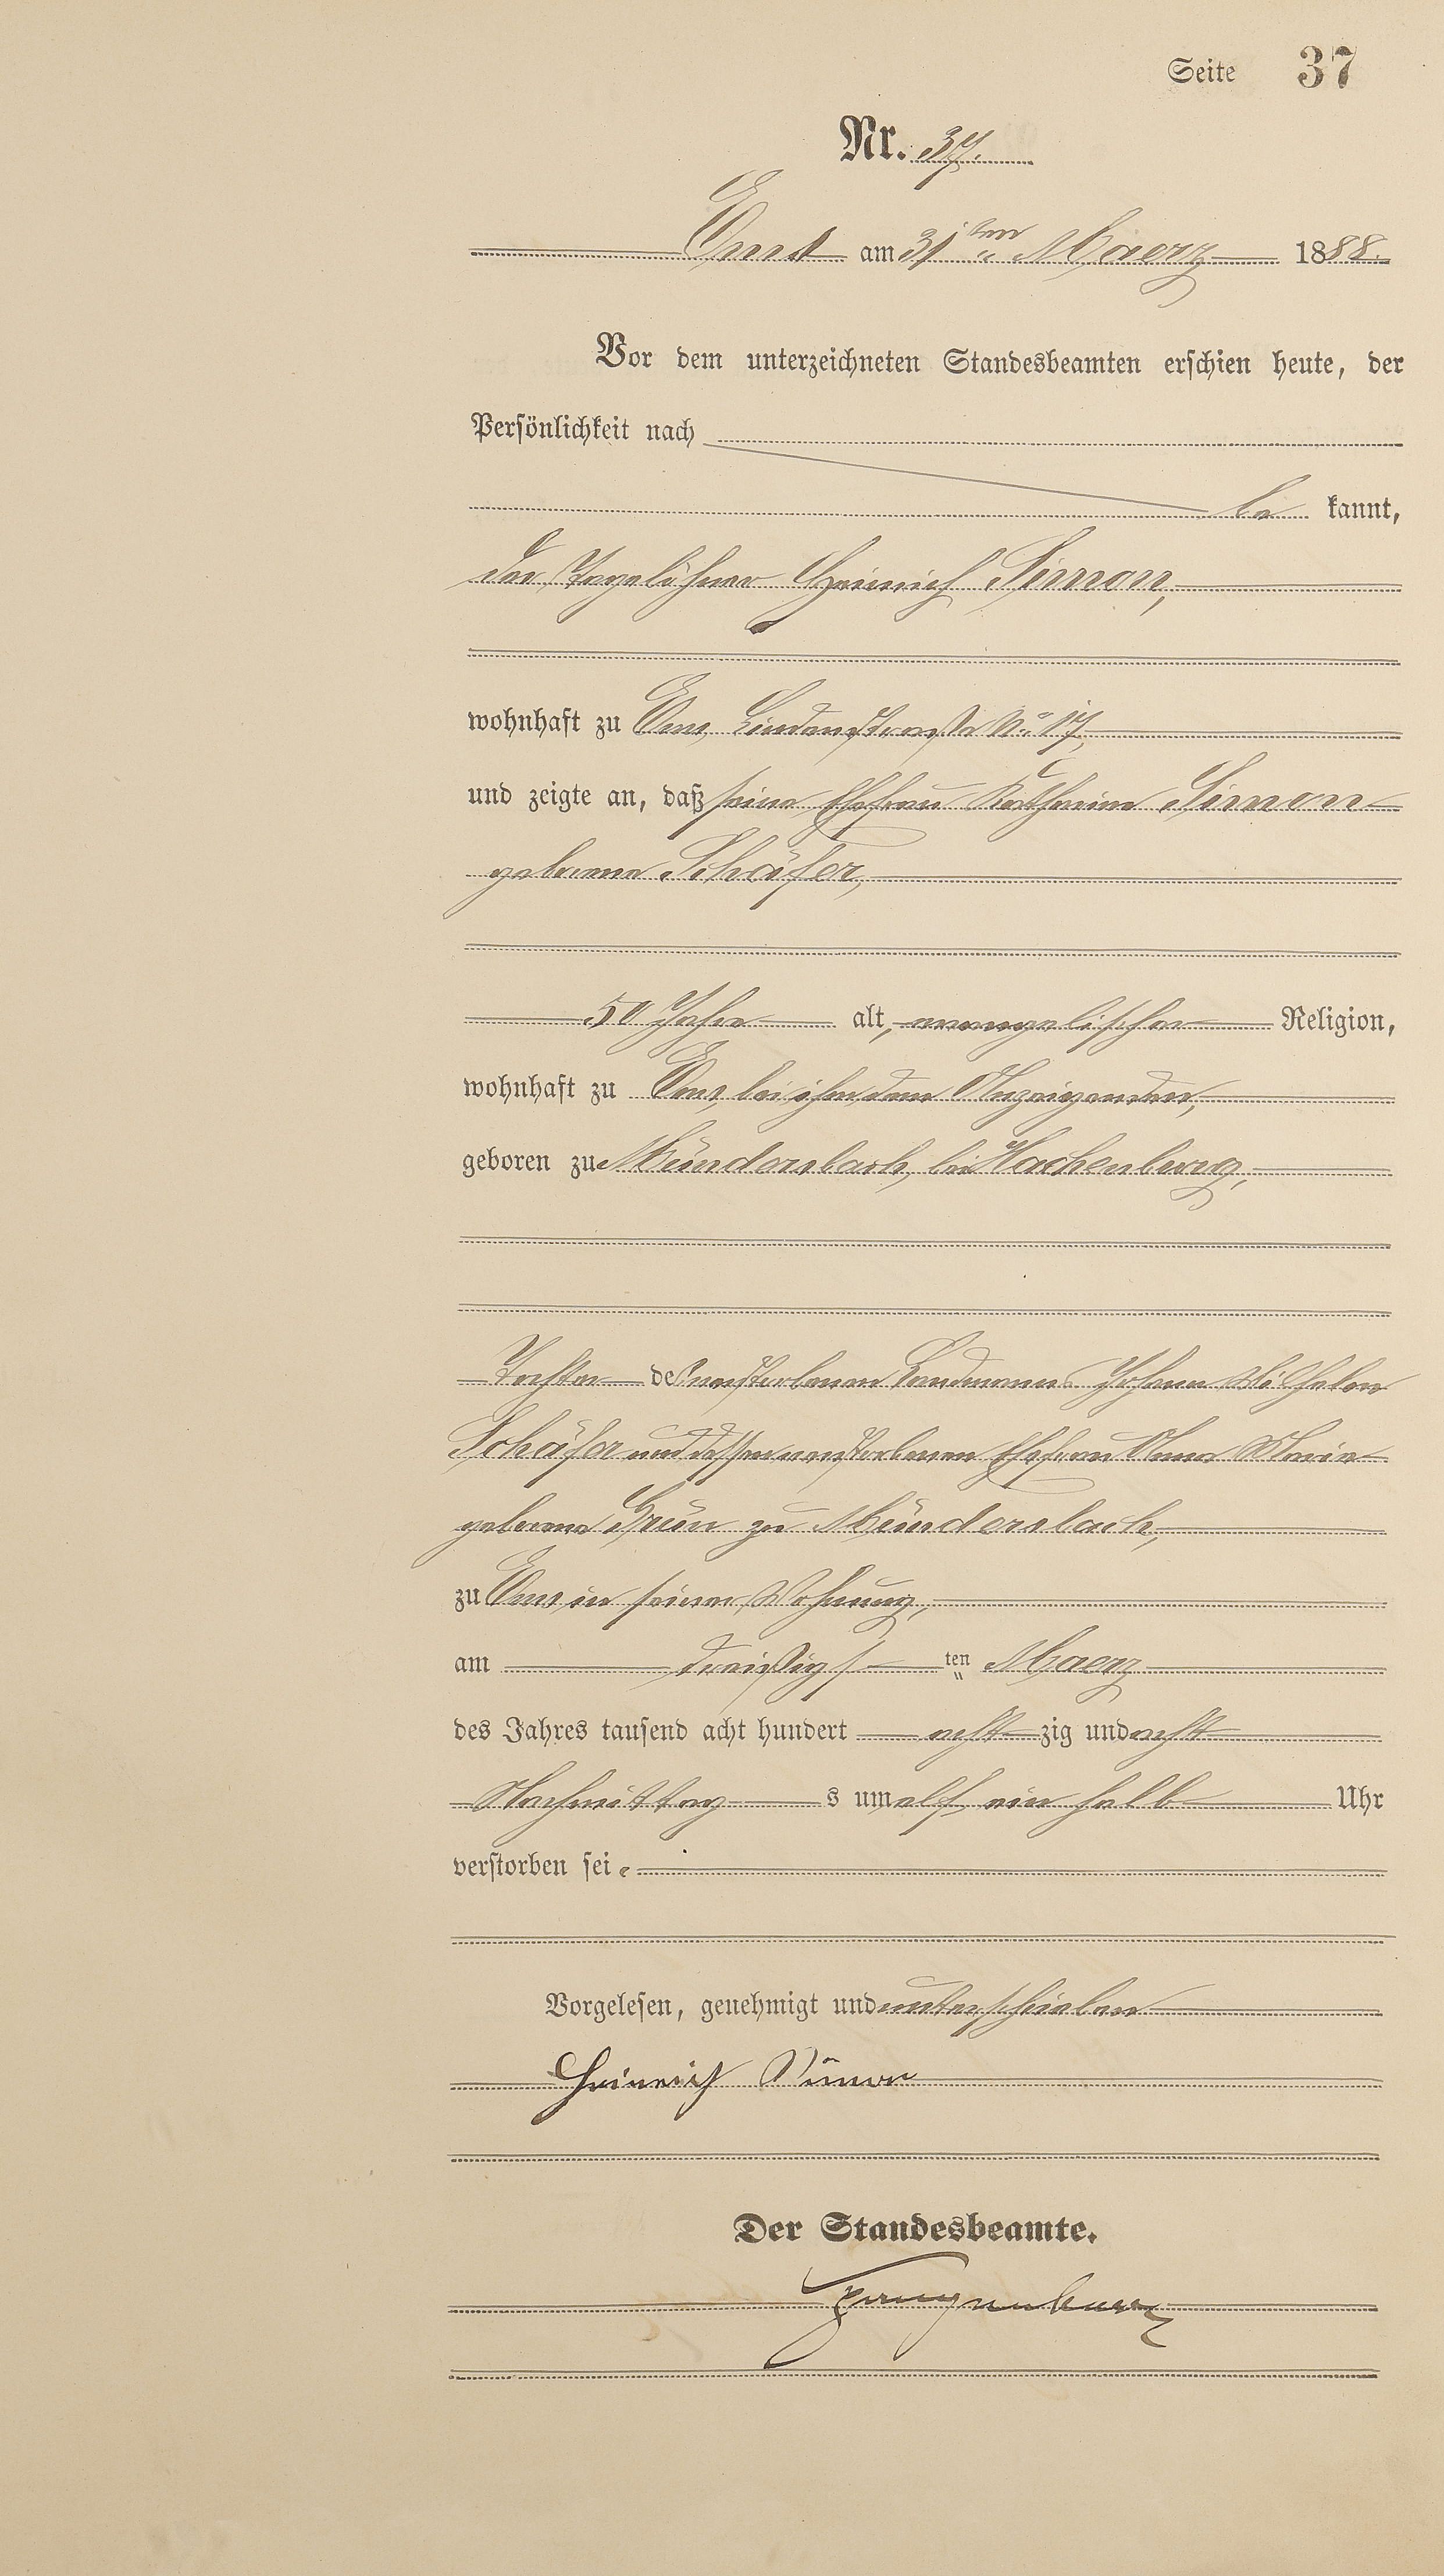 Seite 37
Nr. 37.
Ems am 31ten Maerz 1888.
Vor dem unterzeichneten Standesbeamten erschien heute, der
Persönlichkeit nach
be kannt,
der Tagelöhner Heinrich Simon,
wohnhaft zu Ems, Lindenstraße No 17,
und zeigte an, daß seine Ehefrau Katharine Simon
geborene Schäfer,
50 Jahre alt, evangelischer Religion,
wohnhaft zu Ems, bei ihm dem Anzeigenden,
geboren zu Mündersbach, bei Hachenburg,
Tochter des verstorbenen Landmanns Johann Wilhelm
Schäfer und dessen verstorbenen Ehefrau Anna Maria
geborene Grün zu Mündersbach,
zu Ems in seiner Wohnung,
am dreißigsten Maerz
des Jahres tausend acht hundert acht zig und acht
Nachmittag s um elf ein halb Uhr
verstorben sei.
Vorgelesen, genehmigt und unterschrieben
Heinrich Simon
Der Standesbeamte.